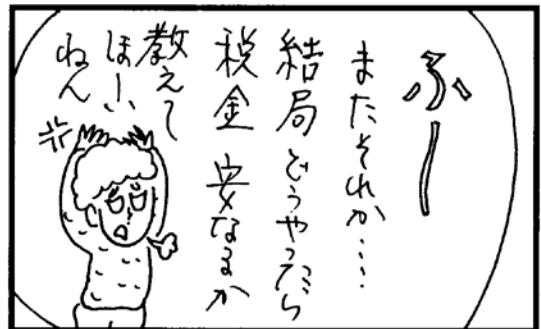 ふー
またそれか…
結局どうやったら
税金安なるか
教えて
ほしい
ねん